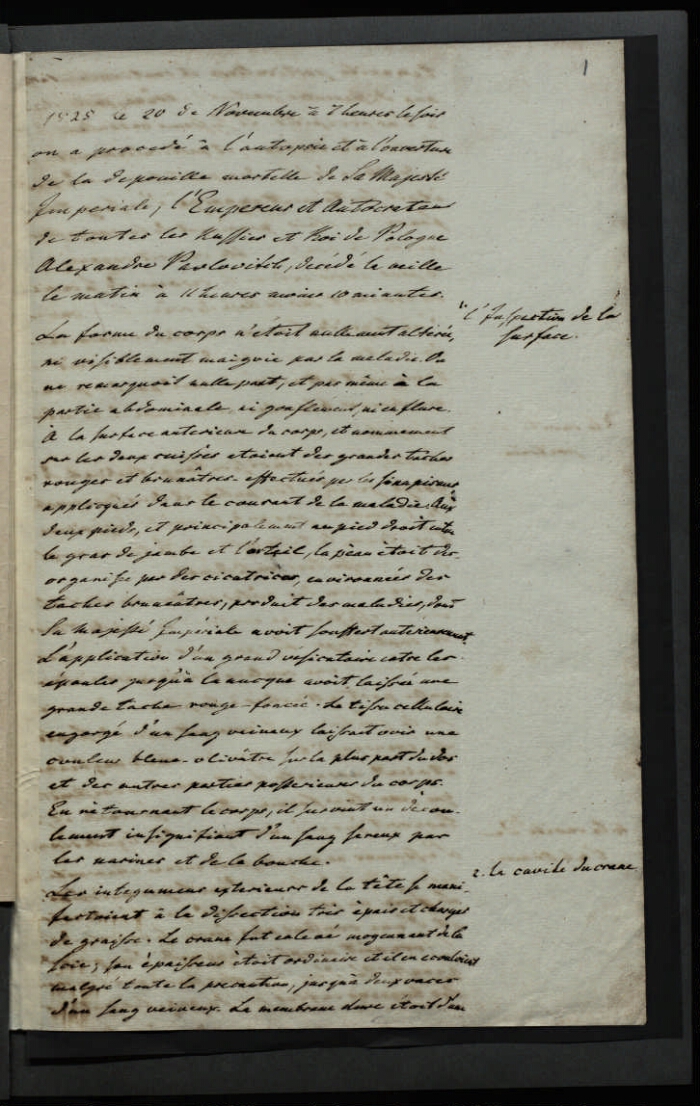 1
1825 le 20 de Novembre à 7 heures le soir
on a procedé à l'autopsie et à l'ouverture
de la depouille mortelle de Sa Majesté
Imperiale, l'Empereur et Autocrateur
de toutes les Russies et Roi de Pologne
Alexandre Pavlovitch, décédé la veille
le matin à 11 heures moins 10 minutes.
1. l'Inspection de la
surface.
La forme du corps n'étoit nullement altérée,
ni visiblement maigrie par la maladie. On
ne remarquoit nulle part, et pas même à la
partie abdominale ni gonflement, ni enflure.
A la surface anterieure du corps, et nommement
sur les deux cuisses etoient des grandes taches
rouges et brunâtres effectués par les sinapismes
appliqués dans le courant de la maladie. Aux
deux pieds, et principalement au pied droit entre
le gras de jambe et l'orteil, la peau étoit des-
organisée par des cicatrices, environnées des
taches brunâtres, produit des maladies, dont
Sa Majesté Impériale avoit souffert anterieurement.
L'application d'un grand vesicatoire entre les
épaules jusqu'à la nucque avoit laissée une
grande tache rouge-foncée. Le tissu cellulaire
engorgé d'un sang veineux laissait voir une
couleur bleue-olivâtre sur la plus part du dos
et des autres parties posterieures du corps.
En retournant le corps, il survint un décou-
lement insignifiant d'un sang sereux par
les narines et de la bouche.
2. la cavité du crane
Les integumens exterieurs de la tête se mani-
festoient à la dissection très épais et charges
de graisse. Le crane fut enlevé moyennant de la
scie; son épaisseur étoit ordinaire et il en
malgré toute la precaution, jusqu'à deux onces
d'un sang veineux. La membrane dure étoit d'une